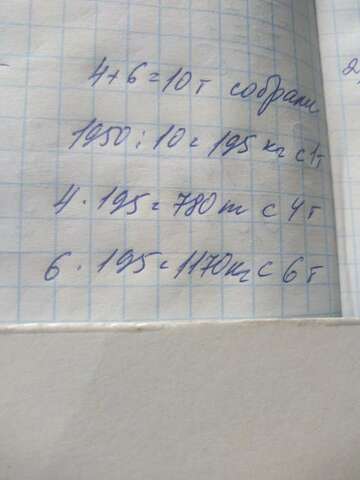 4+6=10т собрали
1950:10=195 кг с 1т
4·195=780т с 4т
6·195=1170кг с 6т
2